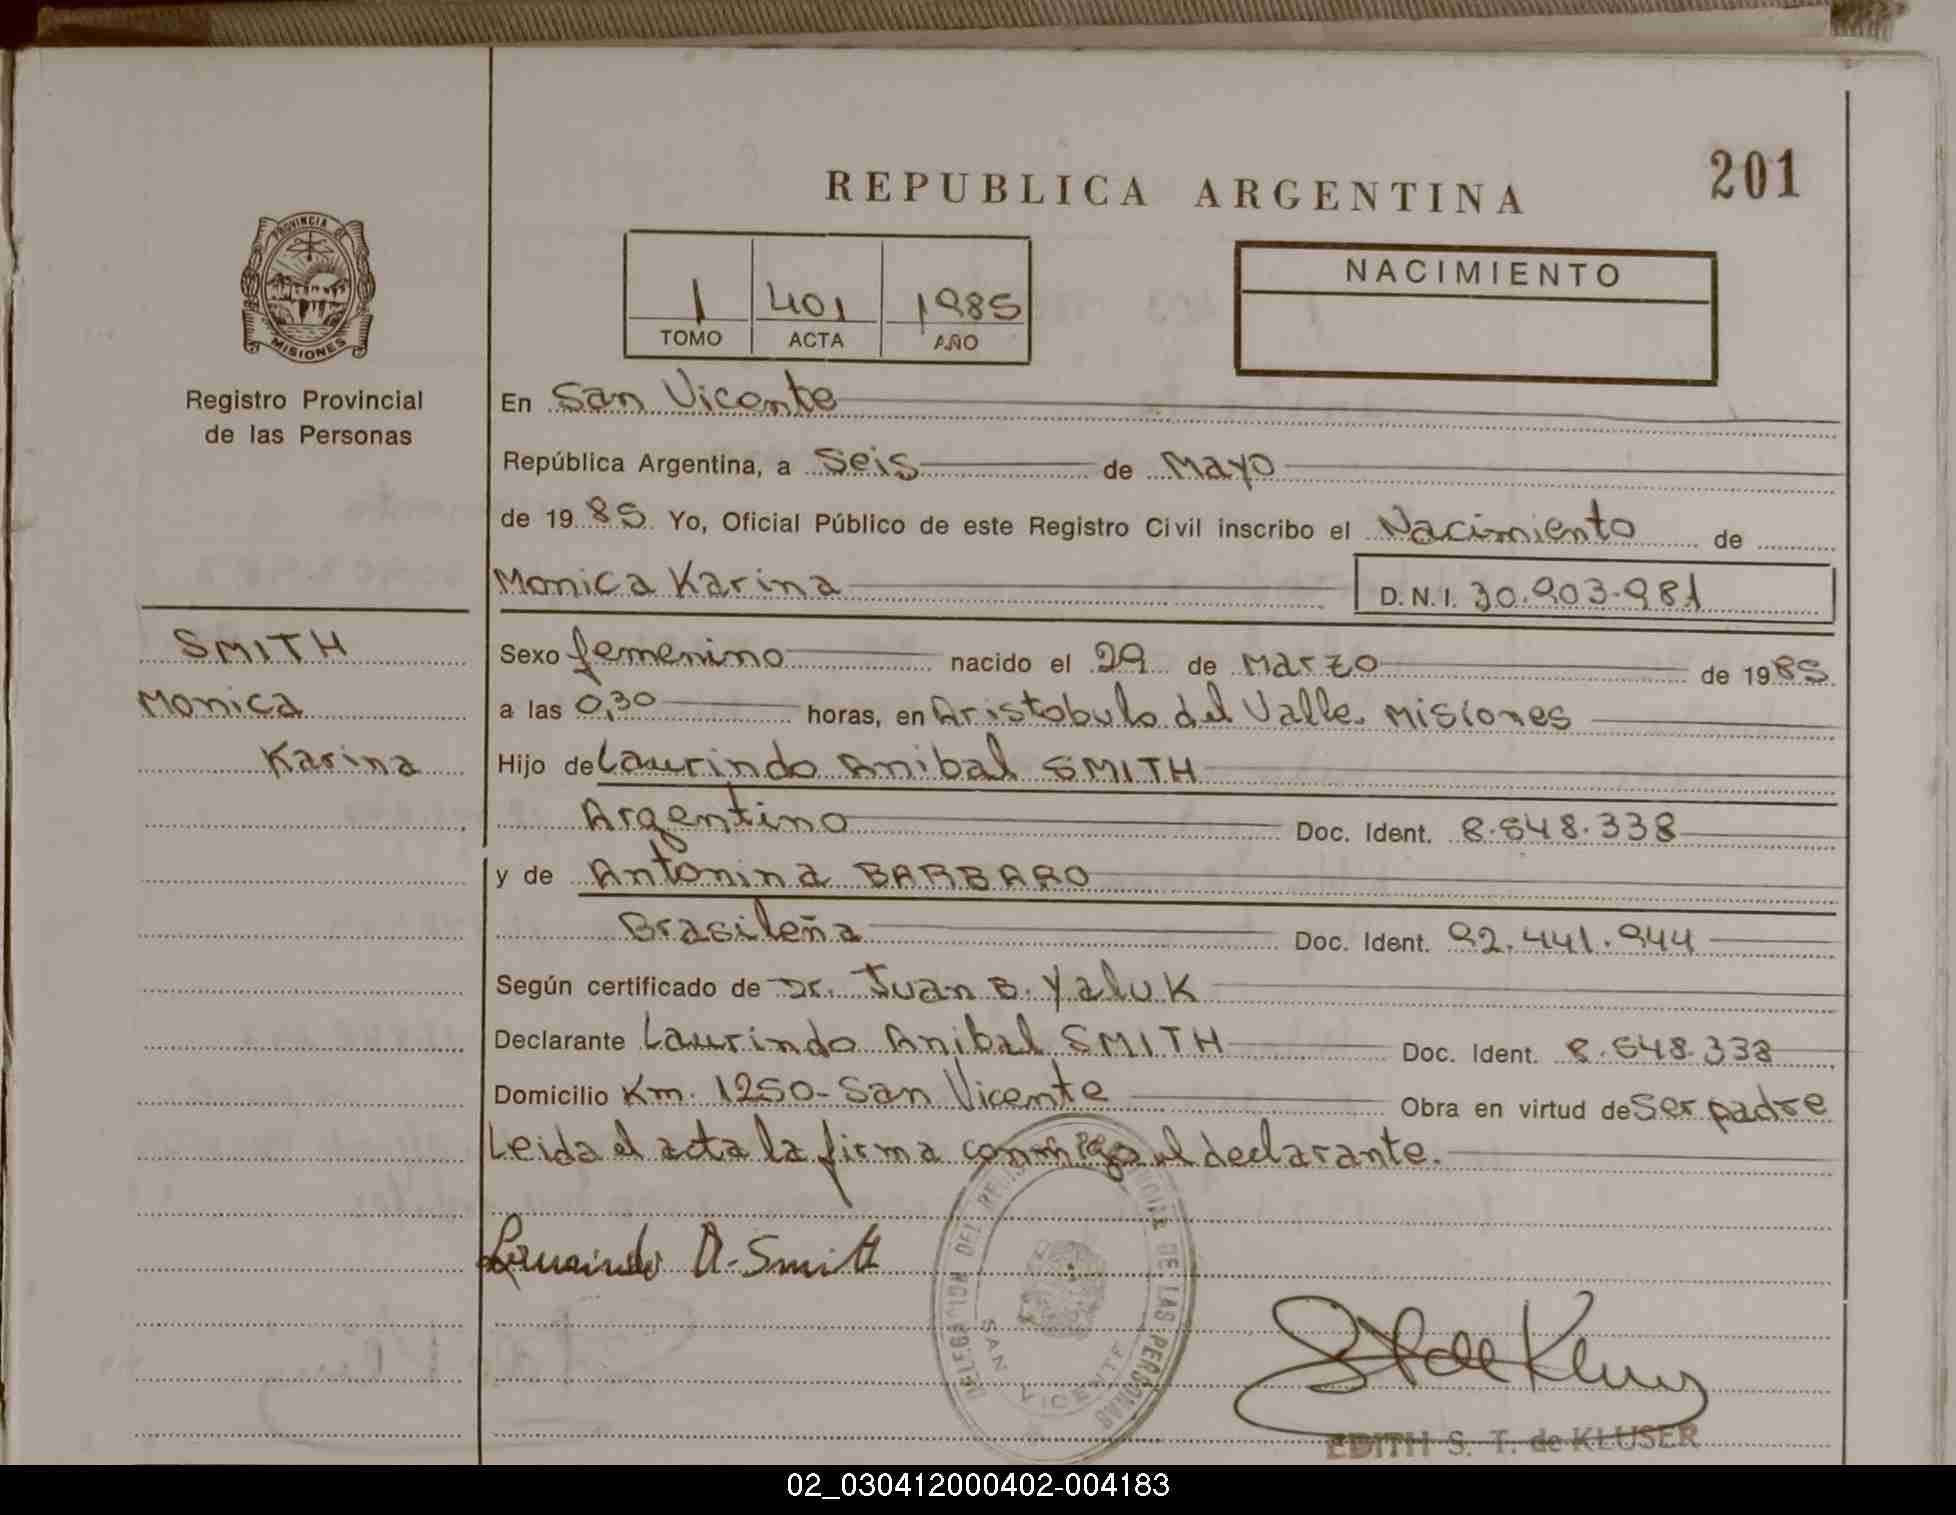 REPUBLICA ARGENTINA
201
PROVINCIA DE
MISIONES
Registro Provincial
de las Personas
1 401 1985
TOMO ACTA AÑO
NACIMIENTO
En San Vicente
República Argentina, a Seis de Mayo
de 1985 Yo, Oficial Público de este Registro Civil inscribo el Nacimiento de
Monica Karina D.N.I. 30.903.981
SMITH
Monica
Karina
Sexo femenino nacido el 29 de Marzo de 1985
a las 0,30 horas, en Aristobulo del Valle. Misiones
Hijo de Laurindo Anibal SMITH
Argentino Doc. Ident. 8.548.338
y de Antonina BARBARO
Brasileña Doc. Ident. 92.441.944
Según certificado de Dr. Juan B. Yaluk
Declarante Laurindo Anibal SMITH Doc. Ident. 8.548.338
Domicilio Km. 1250-San Vicente Obra en virtud de Ser padre
Leida el acta la firma conmigo el declarante.
Laurindo A. Smith
DELEGACION DEL DE LAS PERSONAS
SAN VICENTE
EDITH S. T. de KLUSER
02_030412000402-004183